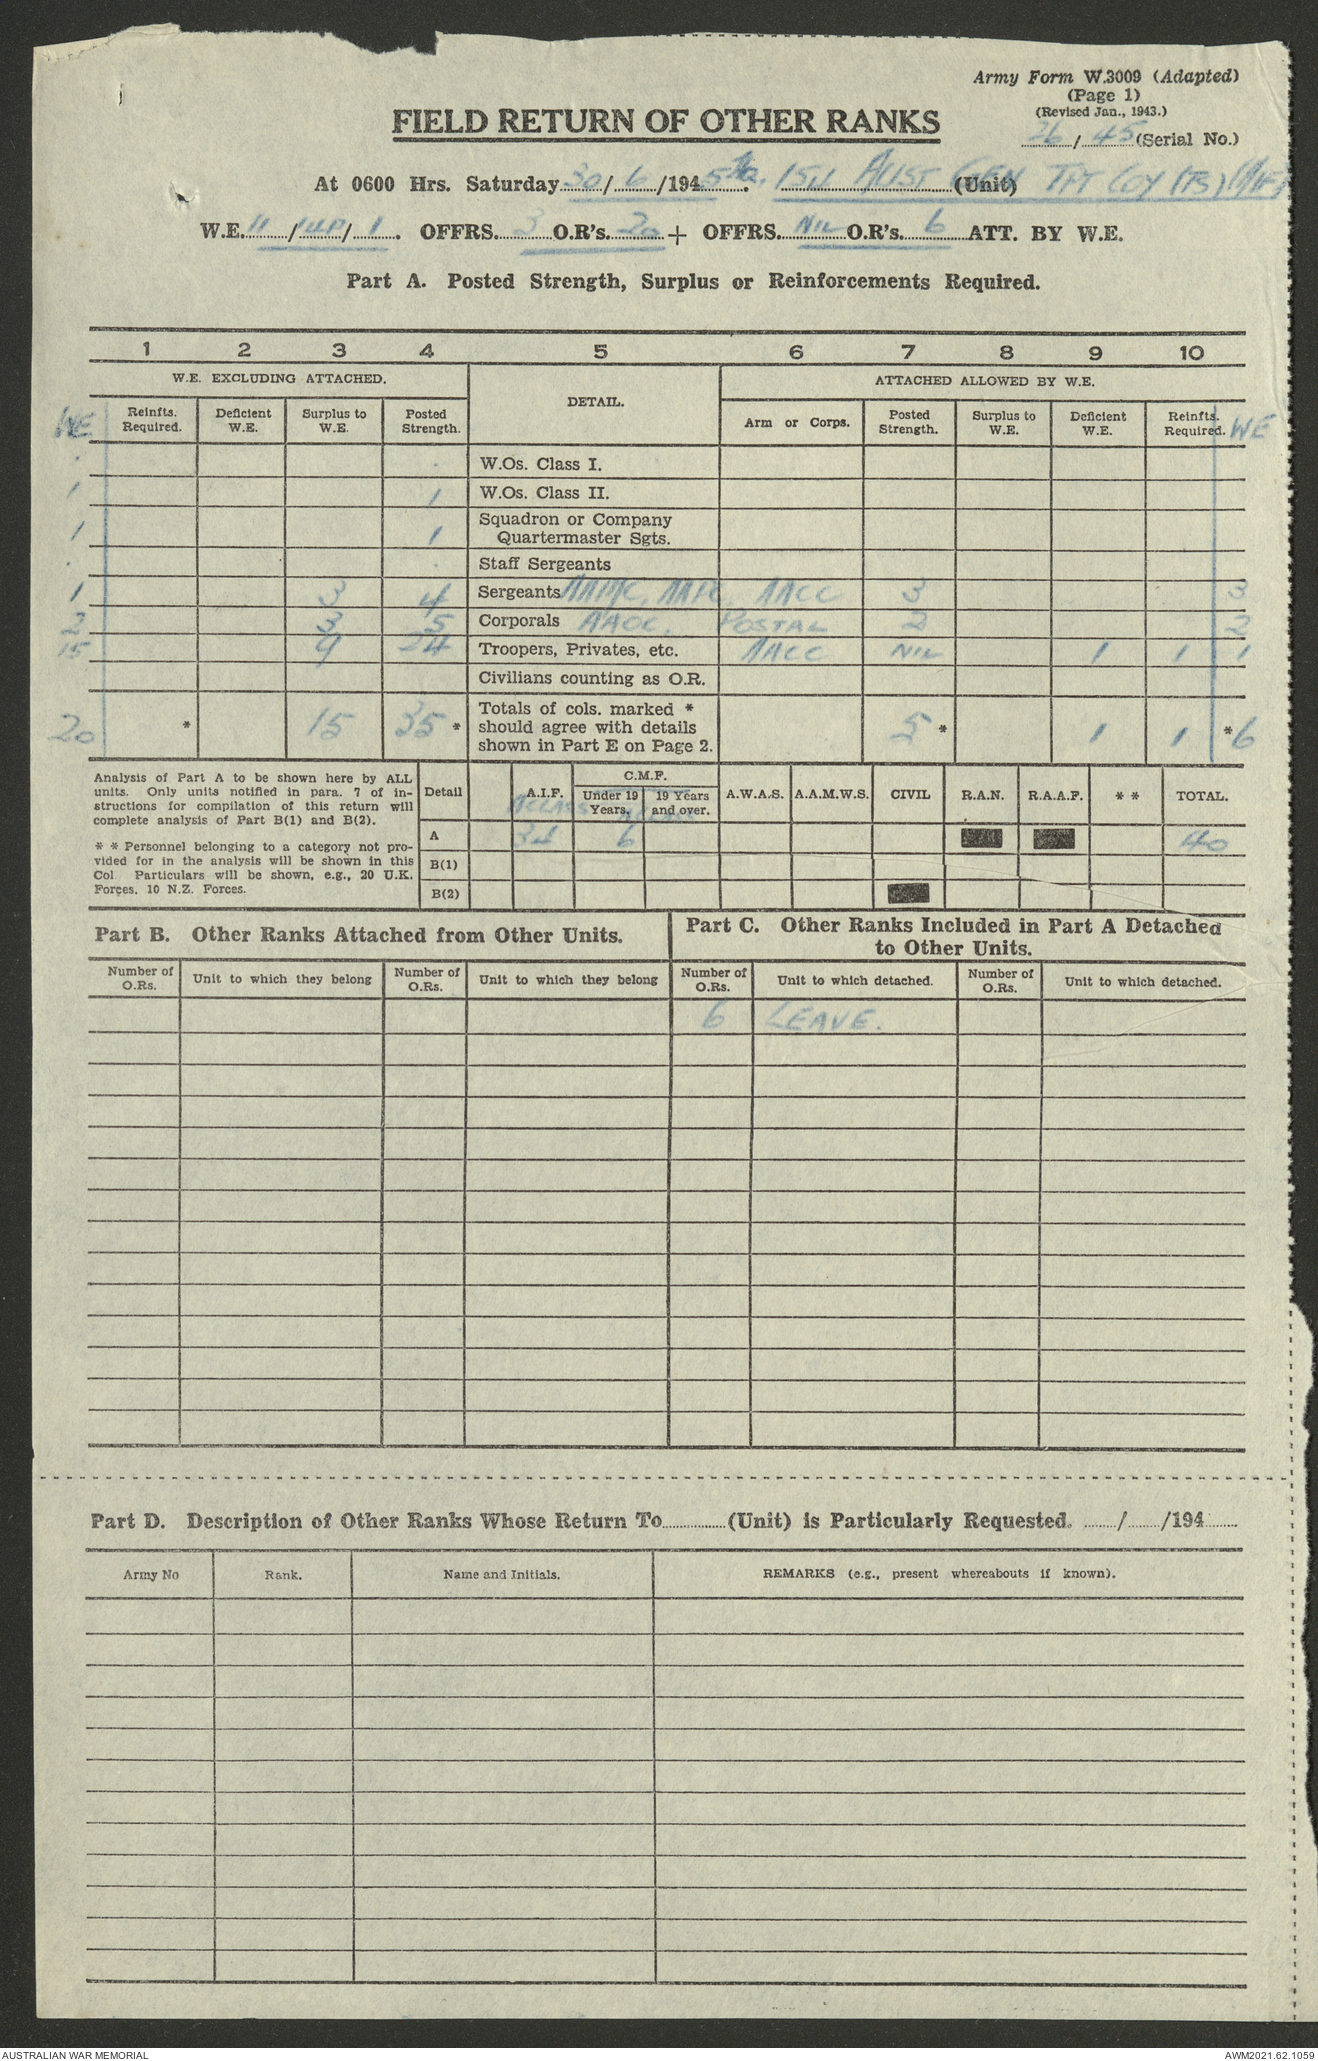 Army Form W.3009 (Adapted)
(Page 1)
(Revised Jan., 1943.)
26/45 (Serial No.)
FIELD RETURN OF OTHER RANKS
At 0600 Hrs. Saturday 30/6/1945. HQ. 151 AUST GEN TPT COY (FS) (AIF) (Unit)
W.E. 11/141P/1. OFFRS. 3 O.R's. 20 + OFFRS. NIL O.R's. 6 ATT. BY W.E.
Part A. Posted Strength, Surplus or Reinforcements Required.
1 2 3 4 5 6 7 8 9 10
W.E. EXCLUDING ATTACHED. DETAIL. ATTACHED ALLOWED BY W.E.
WE Reinfts. Required. Deficient W.E. Surplus to W.E. Posted Strength. Arm or Corps. Posted Strength. Surplus to W.E. Deficient W.E. Reinfts. Required. WE
. . W.Os. Class I.
1 1 W.Os. Class II.
1 1 Squadron or Company Quartermaster Sgts.
. . Staff Sergeants
1 3 4 Sergeants AAMC. AAPC. AACC 3 3
2 3 5 Corporals AAOC. POSTAL 2 2
15 9 24 Troopers, Privates, etc. AACC NIL 1 1 1
Civilians counting as O.R.
20 * 15 35 * Totals of cols. marked * should agree with details shown in Part E on Page 2. 5 * 1 1 * 6
Analysis of Part A to be shown here by ALL
units. Only units notified in para. 7 of in-
structions for compilation of this return will
complete analysis of Part B(1) and B(2).
* * Personnel belonging to a category not pro-
vided for in the analysis will be shown in this
Col. Particulars will be shown, e.g., 20 U.K.
Forces, 10 N.Z. Forces.
Detail A.I.F. C.M.F. Under 19 Years. 19 Years and over. A.W.A.S. A.A.M.W.S. CIVIL R.A.N. R.A.A.F. * * TOTAL.
A CLASS
A 34 6 40
B(1)
B(2)
Part B. Other Ranks Attached from Other Units.
Number of O.Rs. Unit to which they belong Number of O.Rs. Unit to which they belong
Part C. Other Ranks Included in Part A Detached
to Other Units.
Number of O.Rs. Unit to which detached. Number of O.Rs. Unit to which detached.
6 LEAVE.
Part D. Description of Other Ranks Whose Return To.............(Unit) is Particularly Requested. ....../....../194......
Army No Rank. Name and Initials. REMARKS (e.g., present whereabouts if known).
AUSTRALIAN WAR MEMORIAL AWM2021.62.1059